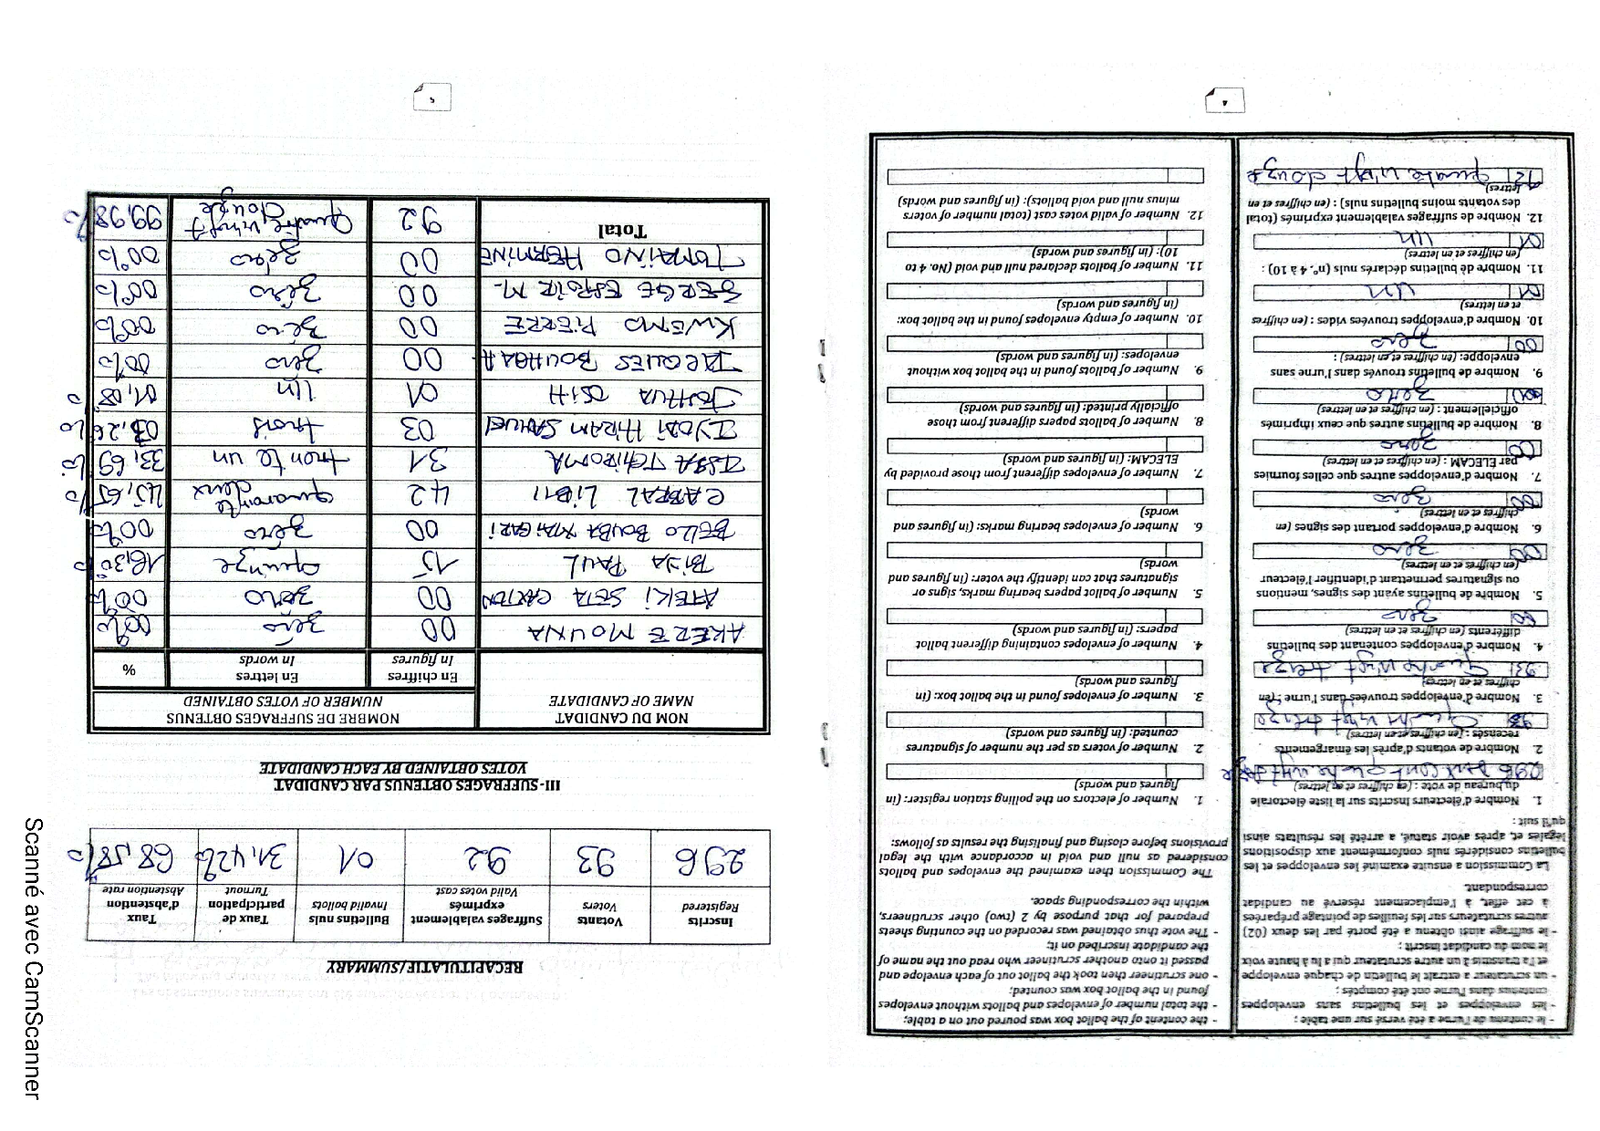 - le contenu de l'urne a été versé sur une table ;
- les enveloppes et les bulletins sans enveloppes
contenus dans l'urne ont été comptés ;
- un scrutateur a extrait le bulletin de chaque enveloppe
et l'a transmis à un autre scrutateur qui a lu à haute voix
le nom du candidat inscrit ;
- le suffrage ainsi obtenu a été porté par les deux (02)
autres scrutateurs sur les feuilles de pointage préparées
à cet effet, à l'emplacement réservé au candidat
correspondant.
La Commission a ensuite examiné les enveloppes et les
bulletins considérés nuls conformément aux dispositions
légales et, après avoir statué, a arrêté les résultats ainsi
qu'il suit :
1. Nombre d'électeurs inscrits sur la liste électorale
du bureau de vote : (en chiffres et en lettres)
296
2. Nombre de votants d'après les émargements
recensés : (en chiffres et en lettres)
93 quatre vingt treize
3. Nombre d'enveloppes trouvées dans l'urne : (en
chiffres et en lettres)
93 quatre vingt treize
4. Nombre d'enveloppes contenant des bulletins
différents (en chiffres et en lettres)
00 zéro
5. Nombre de bulletins ayant des signes, mentions
ou signatures permettant d'identifier l'électeur
(en chiffres et en lettres)
00 zéro
6. Nombre d'enveloppes portant des signes (en
chiffres et en lettres)
00 zéro
7. Nombre d'enveloppes autres que celles fournies
par ELECAM : (en chiffres et en lettres)
00 zéro
8. Nombre de bulletins autres que ceux imprimés
officiellement : (en chiffres et en lettres)
00 zéro
9. Nombre de bulletins trouvés dans l'urne sans
enveloppe: (en chiffres et en lettres) :
00 zéro
10. Nombre d'enveloppes trouvées vides : (en chiffres
et en lettres)
01 un
11. Nombre de bulletins déclarés nuls (n°. 4 à 10) :
(en chiffres et en lettres)
01 un
12. Nombre de suffrages valablement exprimés (total
des votants moins bulletins nuls) : (en chiffres et en
lettres)
92 quatre vingt douze
- the content of the ballot box was poured out on a table;
- the total number of envelopes and ballots without envelopes
found in the ballot box was counted;
- one scrutineer then took the ballot out of each envelope and
passed it onto another scrutineer who read out the name of
the candidate inscribed on it;
- The vote thus obtained was recorded on the counting sheets
prepared for that purpose by 2 (two) other scrutineers,
within the corresponding space.
The Commission then examined the envelopes and ballots
considered as null and void in accordance with the legal
provisions before closing and finalising the results as follows:
1. Number of electors on the polling station register: (in
figures and words)
2. Number of voters as per the number of signatures
counted: (in figures and words)
3. Number of envelopes found in the ballot box: (in
figures and words)
4. Number of envelopes containing different ballot
papers: (in figures and words)
5. Number of ballot papers bearing marks, signs or
signatures that can identify the voter: (in figures and
words)
6. Number of envelopes bearing marks: (in figures and
words)
7. Number of envelopes different from those provided by
ELECAM: (in figures and words)
8. Number of ballots papers different from those
officially printed: (in figures and words)
9. Number of ballots found in the ballot box without
envelopes: (in figures and words)
10. Number of empty envelopes found in the ballot box:
(in figures and words)
11. Number of ballots declared null and void (No. 4 to
10): (in figures and words)
12. Number of valid votes cast (total number of voters
minus null and void ballots): (in figures and words)
4
RECAPITULATIF/SUMMARY
Inscrits Registered | Votants Voters | Suffrage valablement exprimés Valid votes cast | Bulletins nuls Invalid ballots | Taux de participation Turnout | Taux d'abstention Abstention rate
296 | 93 | 92 | 01 | 31,42% | 68,58%
III- SUFFRAGES OBTENUS PAR CANDIDAT
VOTES OBTAINED BY EACH CANDIDATE
NOM DU CANDIDAT
NAME OF CANDIDATE
NOMBRE DE SUFFRAGES OBTENUS
NUMBER OF VOTES OBTAINED
En chiffres In figures | En lettres In words | %
AKERE MOUNA | 00 | zéro | 00%
ATEKI SETA CAXTON | 00 | zéro | 00%
BIYA PAUL | 15 | quinze | 16,30%
BELLO BOUBA MAIGARI | 00 | zéro | 00%
CABRAL LIBII | 42 | quarante deux | 45,65%
ISSA TCHIROMA | 31 | trente un | 33,69%
IYODI HIRAM SAMUEL | 03 | trois | 03,26%
JOSHUA OSIH | 01 | un | 01,08%
JACQUES BOUHGAH | 00 | zéro | 00%
KWEMO PIERRE | 00 | zéro | 00%
SERGE ESPOIR M- | 00 | zéro | 00%
TOMAINO HERMINE | 00 | zéro | 00%
Total | 92 | quatre vingt douze | 99,98%
5
Scanné avec CamScanner